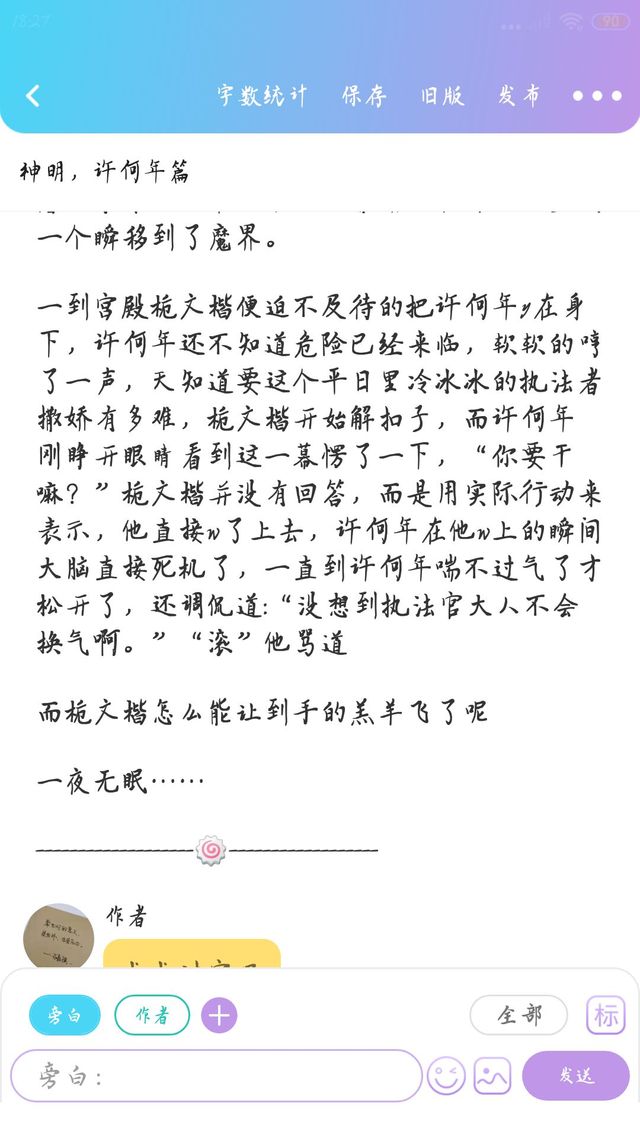 18:27
90
字数统计 保存 旧版 发布
神明，许何年篇
一个瞬移到了魔界。
一到宫殿栀文楷便迫不及待的把许何年y在身
下，许何年还不知道危险已经来临，软软的哼
了一声，天知道要这个平日里冷冰冰的执法者
撒娇有多难，栀文楷开始解扣子，而许何年
刚睁开眼睛看到这一幕愣了一下，“你要干
嘛？”栀文楷并没有回答，而是用实际行动来
表示，他直接w了上去，许何年在他w上的瞬间
大脑直接死机了，一直到许何年喘不过气了才
松开了，还调侃道:“没想到执法官大人不会
换气啊。”“滚”他骂道
而栀文楷怎么能让到手的羔羊飞了呢
一夜无眠……
作者
旁白 作者 全部 标
旁白：
发送